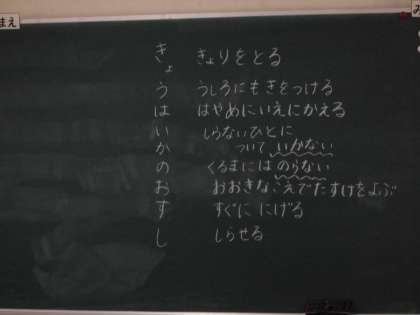 まえ
きょ きょりをとる
う うしろにもきをつける
は はやめにいえにかえる
い しらないひとに
か ついていかない
の くるまにはのらない
お おおきなこえでたすけをよぶ
す すぐににげる
し しらせる